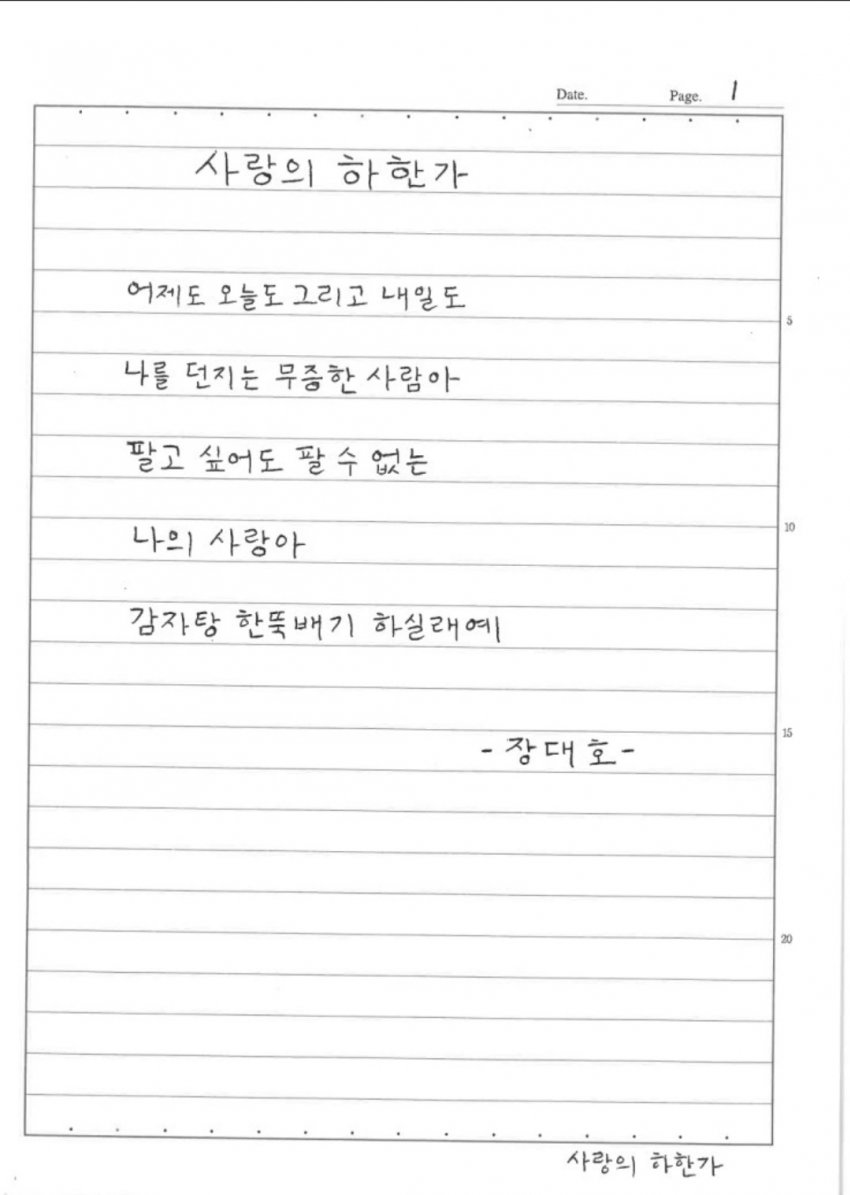 Date. Page. 1
사랑의 하한가
어제도 오늘도 그리고 내일도
5
나를 던지는 무증한 사람아
팔고 싶어도 팔 수 없는
10
나의 사랑아
감자탕 한뚝배기 하실래예
15
- 장대호 -
20
사랑의 하한가